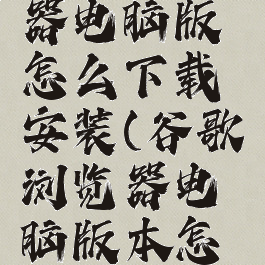 器电脑版
怎么下载
安装(谷歌
浏览器电
脑版本怎